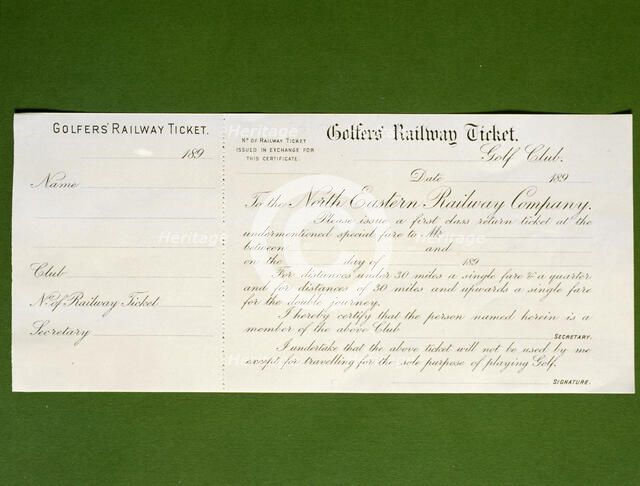 GOLFERS' RAILWAY TICKET.
189
Name
Club
No. of Railway Ticket
Secretary
No. OF RAILWAY TICKET
ISSUED IN EXCHANGE FOR
THIS CERTIFICATE.
Golfers' Railway Ticket.
Golf Club.
Date 189
To the North Eastern Railway Company.
Please issue a first class return ticket at the
undermentioned special fare to Mr
between and
on the day of 189
For distances under 30 miles a single fare & a quarter
and for distances of 30 miles and upwards a single fare
for the double journey.
I hereby certify that the person named herein is a
member of the above Club
SECRETARY.
I undertake that the above ticket will not be used by me
except for travelling for the sole purpose of playing Golf.
SIGNATURE.
Heritage
Heritage
Heritage
Heritage